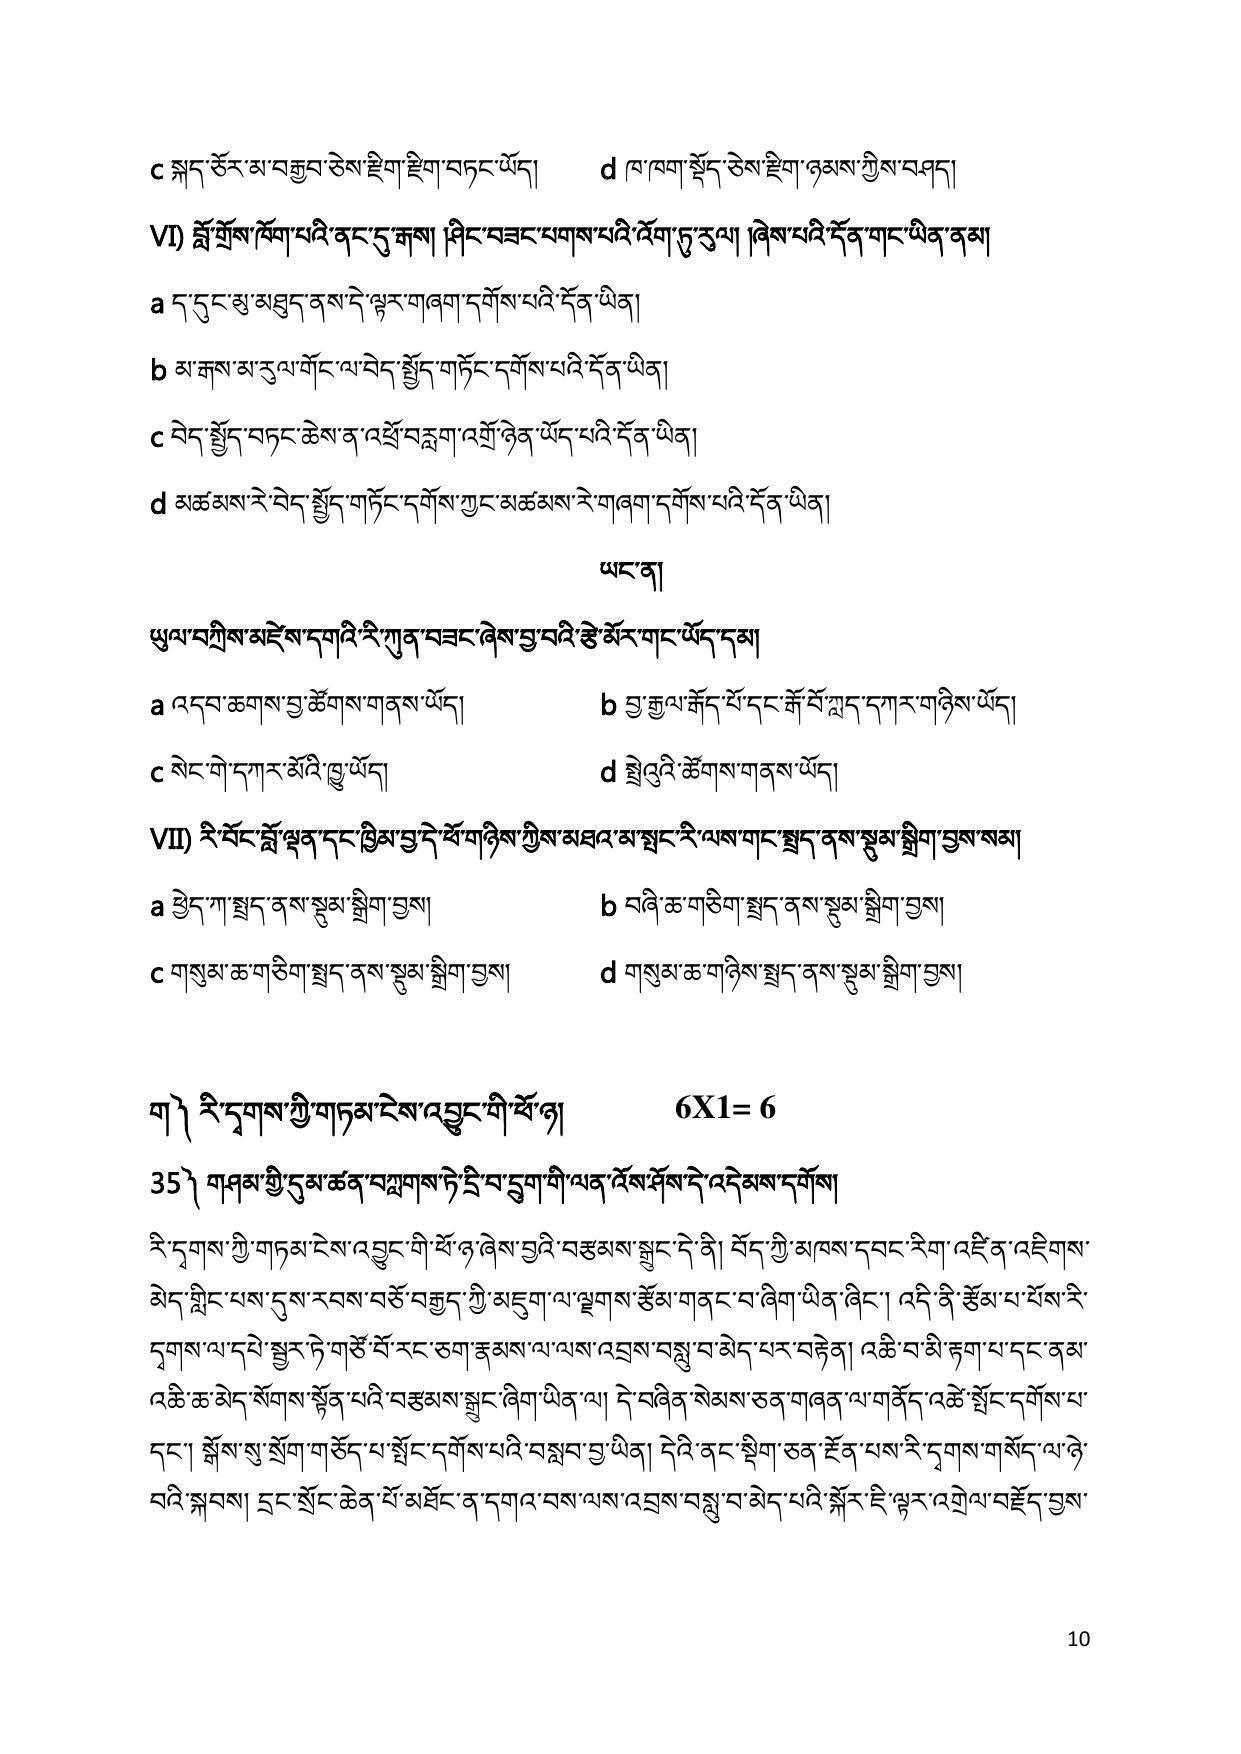 c སྐད་ཅོར་མ་བརྒྱབ་ཅེས་རྫིག་རྫིག་བཏང་ཡོད།	d ཁ་ཁག་སྡོད་ཅེས་རྫིག་ཉམས་ཀྱིས་བཤད།
VI) བློ་གྲོས་ཁོག་པའི་ནང་དུ་རྒས། །ཤིང་བཟང་པགས་པའི་འོག་ཏུ་རུལ། །ཞེས་པའི་དོན་གང་ཡིན་ནམ།
a ད་དུང་མུ་མཐུད་ནས་དེ་ལྟར་གཞག་དགོས་པའི་དོན་ཡིན།
b མ་རྒས་མ་རུལ་གོང་ལ་བེད་སྤྱོད་གཏོང་དགོས་པའི་དོན་ཡིན།
c བེད་སྤྱོད་བཏང་ཆེས་ན་འཕྲོ་བརླག་འགྲོ་ཉེན་ཡོད་པའི་དོན་ཡིན།
d མཚམས་རེ་བེད་སྤྱོད་གཏོང་དགོས་ཀྱང་མཚམས་རེ་གཞག་དགོས་པའི་དོན་ཡིན།
ཡང་ན།
ཡུལ་བཀྲིས་མཛེས་དགའི་རི་ཀུན་བཟང་ཞེས་བྱ་བའི་རྩེ་མོར་གང་ཡོད་དམ།
a འདབ་ཆགས་བྱ་ཚོགས་གནས་ཡོད།	b བྱ་རྒྱལ་རྒོད་པོ་དང་རྒོ་བོ་ཀླད་དཀར་གཉིས་ཡོད།
c སེང་གེ་དཀར་མོའི་ཁྱུ་ཡོད།	d སྤྲེའུའི་ཚོགས་གནས་ཡོད།
VII) རི་བོང་བློ་ལྡན་དང་ཁྱིམ་བྱ་དེ་ཕོ་གཉིས་ཀྱིས་མཐའ་མ་སྤང་རི་ལས་གང་སྤྲད་ནས་སྡུམ་སྒྲིག་བྱས་སམ།
a ཕྱེད་ཀ་སྤྲད་ནས་སྡུམ་སྒྲིག་བྱས།	b བཞི་ཆ་གཅིག་སྤྲད་ནས་སྡུམ་སྒྲིག་བྱས།
c གསུམ་ཆ་གཅིག་སྤྲད་ནས་སྡུམ་སྒྲིག་བྱས།	d གསུམ་ཆ་གཉིས་སྤྲད་ནས་སྡུམ་སྒྲིག་བྱས།
ག༽ རི་དྭགས་ཀྱི་གཏམ་ངེས་འབྱུང་གི་ཕོ་ཉ།	6X1= 6
35༽ གཤམ་གྱི་དུམ་ཚན་བཀླགས་ཏེ་དྲི་བ་དྲུག་གི་ལན་འོས་ཤོས་དེ་འདེམས་དགོས།
རི་དྭགས་ཀྱི་གཏམ་ངེས་འབྱུང་གི་ཕོ་ཉ་ཞེས་བྱའི་བརྩམས་སྒྲུང་དེ་ནི། བོད་ཀྱི་མཁས་དབང་རིག་འཛིན་འཇིགས་
མེད་གླིང་པས་དུས་རབས་བཅོ་བརྒྱད་ཀྱི་མཇུག་ལ་ལྗགས་རྩོམ་གནང་བ་ཞིག་ཡིན་ཞིང་། འདི་ནི་རྩོམ་པ་པོས་རི་
དྭགས་ལ་དཔེ་སྦྱར་ཏེ་གཙོ་བོ་རང་ཅག་རྣམས་ལ་ལས་འབྲས་བསླུ་བ་མེད་པར་བརྟེན། འཆི་བ་མི་རྟག་པ་དང་ནམ་
འཆི་ཆ་མེད་སོགས་སྟོན་པའི་བརྩམས་སྒྲུང་ཞིག་ཡིན་ལ། དེ་བཞིན་སེམས་ཅན་གཞན་ལ་གནོད་འཚེ་སྤོང་དགོས་པ་
དང་། སྒོས་སུ་སྲོག་གཅོད་པ་སྤོང་དགོས་པའི་བསླབ་བྱ་ཡིན། དེའི་ནང་སྡིག་ཅན་རྔོན་པས་རི་དྭགས་གསོད་ལ་ཉེ་
བའི་སྐབས། དྲང་སྲོང་ཆེན་པོ་མཐོང་ན་དགའ་བས་ལས་འབྲས་བསླུ་བ་མེད་པའི་སྐོར་ཇི་ལྟར་འགྲེལ་བརྗོད་བྱས་
10